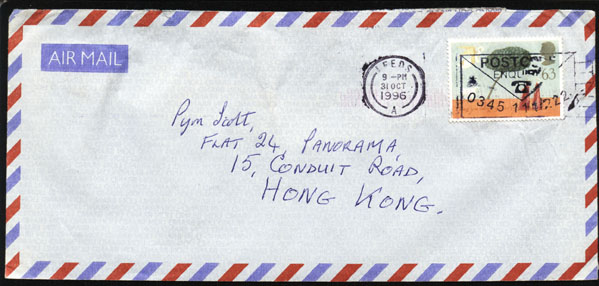 AIR MAIL
LEEDS
9-PM
31 OCT
1996
A
POSTC
ENQUI
63
0345
Pym Scott,
FLAT 24, PANORAMA,
15, CONDUIT ROAD,
HONG KONG.